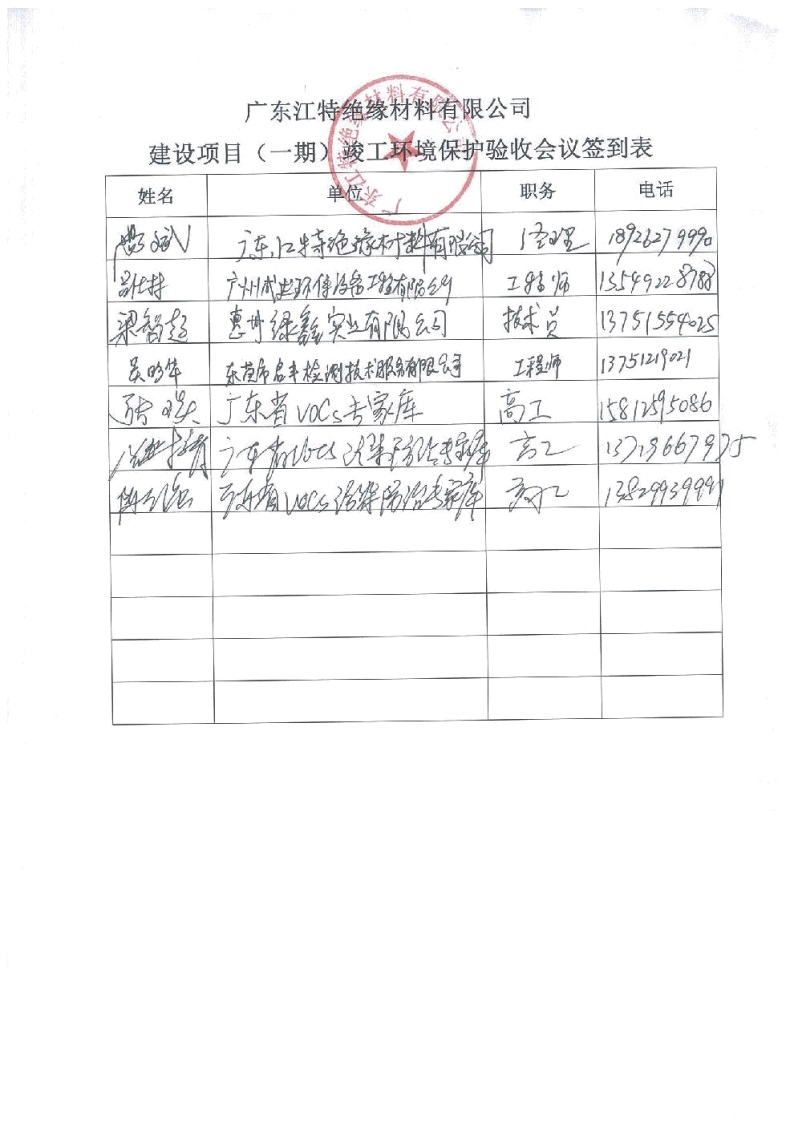 广东江特绝缘材料有限公司
建设项目（一期）竣工环境保护验收会议签到表
广东江特绝缘材料有限公司
姓名 单位 职务 电话
斌 广东江特绝缘材料有限公司 经理 18926279990
广州 环保设备工程有限公司 工程师 13549228788
梁智超 惠州绿鑫实业有限公司 技术员 13751554025
吴明华 东莞市启丰检测技术服务有限公司 工程师 13751219021
张瑛 广东省VOCs专家库 高工 15812595086
广东省VOCs污染防治专家库 高工 13713667975
广东省VOCs污染防治专家库 高工 13829939991